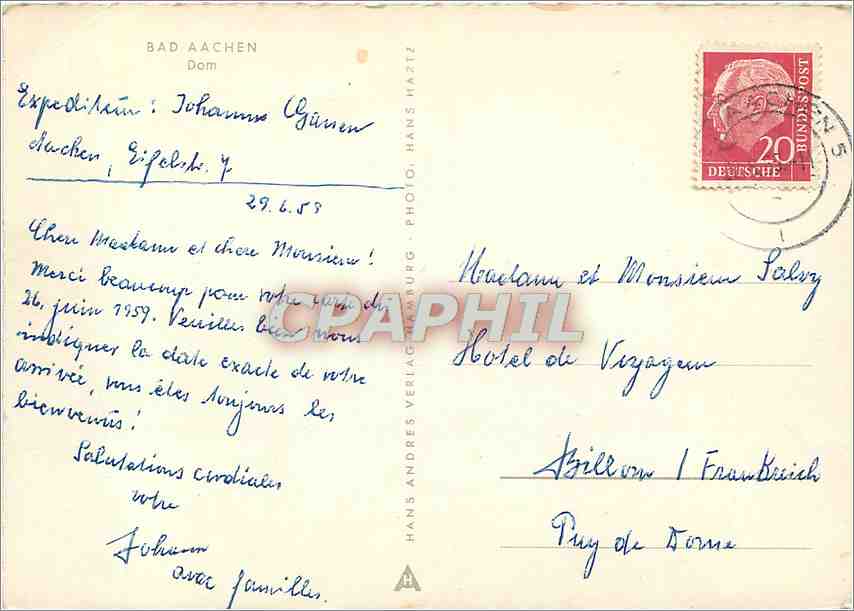 BAD AACHEN
Dom
Expediteur: Johannes Günen
Aachen, Eifelstr. 7
29.6.59
Chere Madame et chere Monsieur!
Merci beaucoup pour votre carte du
26. juin 1959. Veuilles bien nous
indiquer la date exacte de votre
arrivée, vous êtes toujours les
bienvenus!
Salutations cordiales
votre
Johann
avec familles.
HANS ANDRES VERLAG HAMBURG · PHOTO: HANS HARTZ
CPAPHIL
20
DEUTSCHE
BUNDESPOST
AACHEN 5
Madame et Monsieur Salvy
Hotel de Voyageur
Billom / Frankreich
Puy de Dome